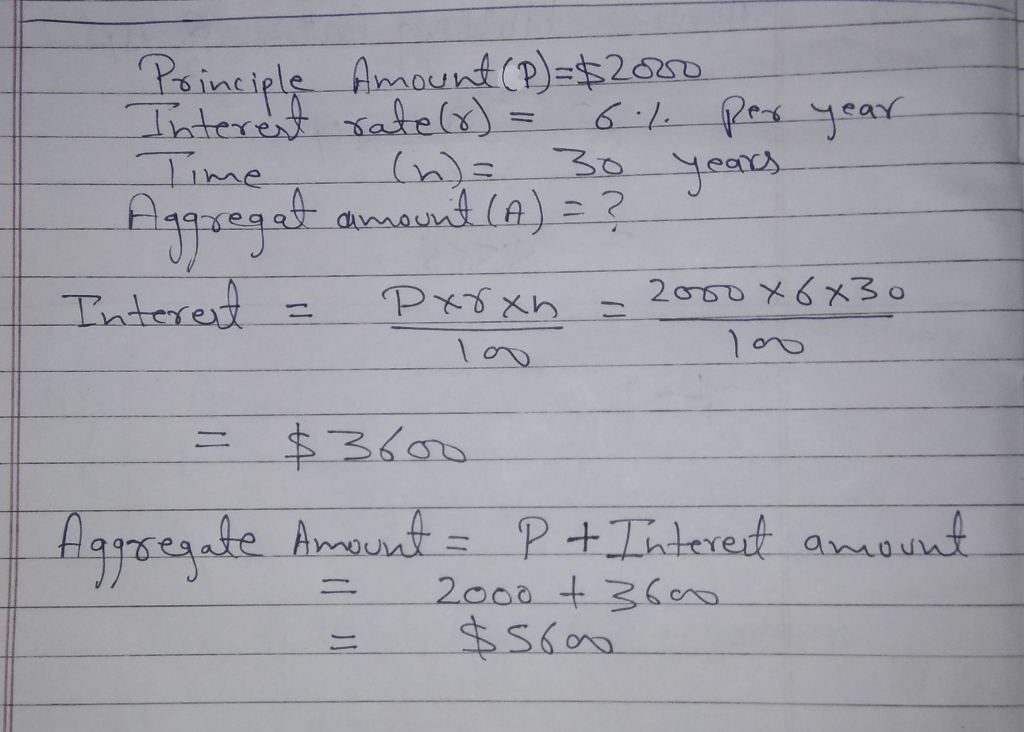 Principle Amount (P)=$2000
Interest rate(r) = 6 % Per year
Time (n)= 30 years
Aggregat amount (A) = ?
Interest = P×r×n / 100 = 2000 × 6 × 30 / 100
= $ 3600
Aggregate Amount = P + Interest amount
= 2000 + 3600
= $5600